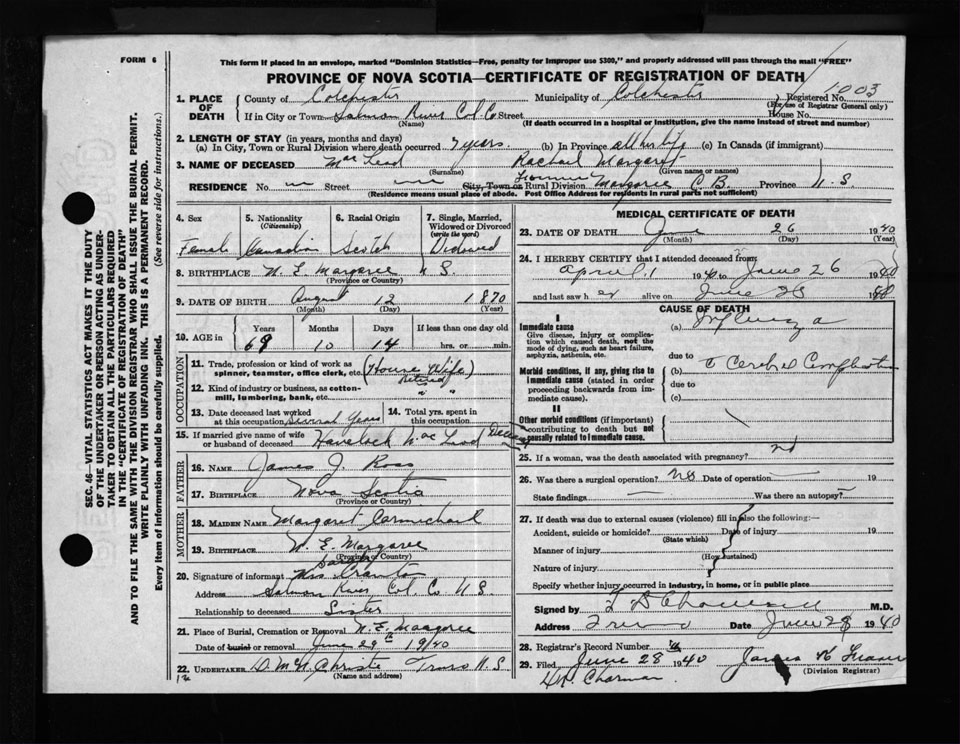 FORM 6
This form if placed in an envelope, marked "Dominion Statistics—Free, penalty for improper use $300," and properly addressed will pass through the mail "FREE"
PROVINCE OF NOVA SCOTIA—CERTIFICATE OF REGISTRATION OF DEATH
1. PLACE OF DEATH { County of Colchester Municipality of Colchester Registered No. 1003
(For use of Registrar General only)
If in City or Town Salmon River Col. Co Street House No.
(Name) (If death occurred in a hospital or institution, give the name instead of street and number)
2. LENGTH OF STAY (in years, months and days)
(a) In City, Town or Rural Division where death occurred 7 years. (b) In Province all her life (c) In Canada (if immigrant)
3. NAME OF DECEASED Mac Leod Rachael Margaret
(Surname) (Given name or names)
RESIDENCE No. — Street — City, Town or Rural Division Margaree C. B. Province N. S
(Residence means usual place of abode. Post Office Address for residents in rural parts not sufficient)
4. Sex Female
5. Nationality (Citizenship) Canadian
6. Racial Origin Scotch
7. Single, Married, Widowed or Divorced (write the word) Widowed
8. BIRTHPLACE N. E. Margaree N S.
(Province or Country)
9. DATE OF BIRTH August 12 1870
(Month) (Day) (Year)
10. AGE in { Years 69 Months 10 Days 14 If less than one day old
hrs. or min.
OCCUPATION
11. Trade, profession or kind of work as spinner, teamster, office clerk, etc. (House Wife)
Retired
12. Kind of industry or business, as cotton-mill, lumbering, bank, etc. " "
13. Date deceased last worked at this occupation Several Years
14. Total yrs. spent in this occupation
15. If married give name of wife or husband of deceased Havelock Mac Leod
FATHER
16. NAME James J. Ross
17. BIRTHPLACE Nova Scotia
(Province or Country)
MOTHER
18. MAIDEN NAME Margaret Carmichael
19. BIRTHPLACE N. E. Margaree
(Province or Country)
20. Signature of informant Mrs Sarah
Address Salmon River, Col. Co N S
Relationship to deceased Sister
21. Place of Burial, Cremation or Removal N. E. Margaree
Date of burial or removal June 29th 1940
22. UNDERTAKER Christie Truro N. S
(Name and address)
MEDICAL CERTIFICATE OF DEATH
23. DATE OF DEATH June 26 1940
(Month) (Day) (Year)
24. I HEREBY CERTIFY that I attended deceased from
April 1 1940 to June 26 1940
and last saw her alive on June 1940
CAUSE OF DEATH
I
Immediate cause
Give disease, injury or complication which caused death, not the mode of dying, such as heart failure, asphyxia, asthenia, etc.
(a) Influenza
due to
Morbid conditions, if any, giving rise to immediate cause (stated in order proceeding backwards from immediate cause).
(b)
due to
(c)
II
Other morbid conditions (if important) contributing to death but not causally related to immediate cause.
25. If a woman, was the death associated with pregnancy? no
26. Was there a surgical operation? no Date of operation — 19
State findings — Was there an autopsy? —
27. If death was due to external causes (violence) fill in also the following:—
Accident, suicide or homicide? Date of injury 19
(State which)
Manner of injury
(How sustained)
Nature of injury
Specify whether injury occurred in industry, in home, or in public place
Signed by M.D.
Address Truro Date June 1940
28. Registrar's Record Number
29. Filed June 28 1940 James K Fraser
(Division Registrar)
SEC. 46—VITAL STATISTICS ACT MAKES IT THE DUTY OF THE UNDERTAKER OR PERSON ACTING AS UNDERTAKER TO OBTAIN ALL THE PARTICULARS REQUIRED IN THE "CERTIFICATE OF REGISTRATION OF DEATH" AND TO FILE THE SAME WITH THE DIVISION REGISTRAR WHO SHALL ISSUE THE BURIAL PERMIT.
WRITE PLAINLY WITH UNFADING INK. THIS IS A PERMANENT RECORD.
Every item of information should be carefully supplied. (See reverse side for instructions.)